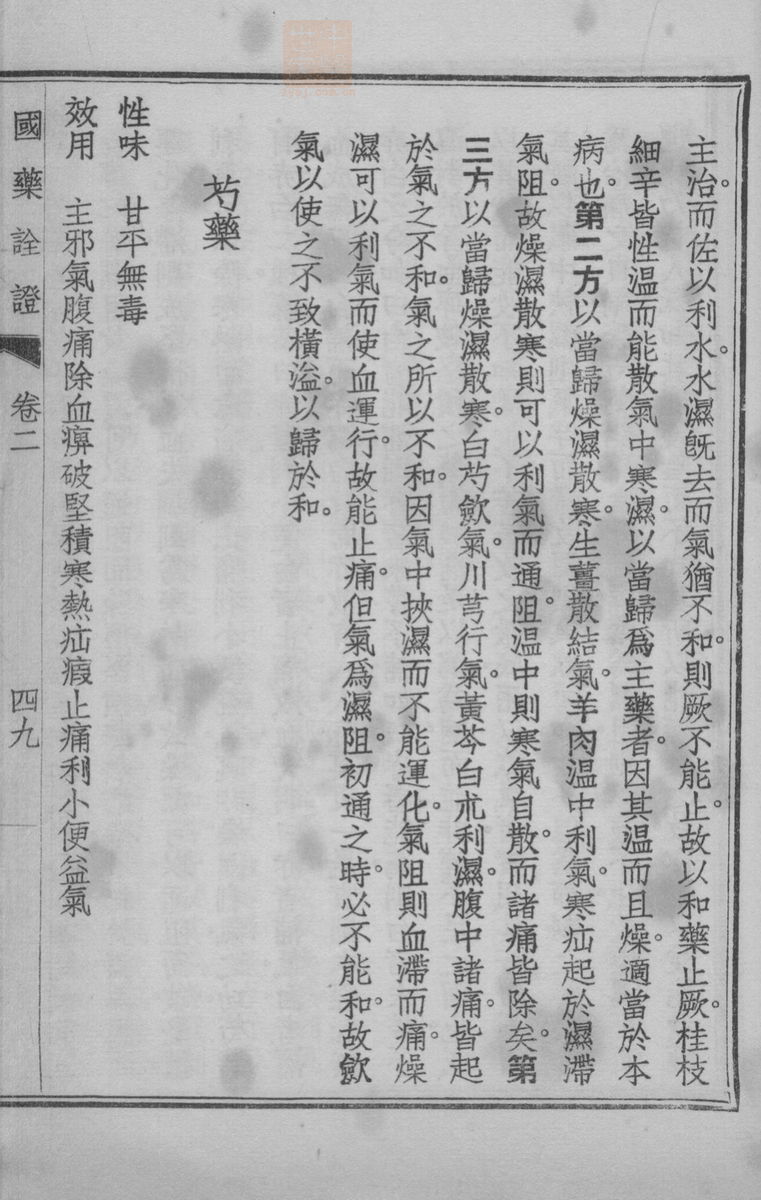 主治。而佐以利水。水濕旣去而氣猶不和。則厥不能止。故以和藥止厥。桂枝
細辛皆性温而能散氣中寒濕。以當歸爲主藥者。因其温而且燥。適當於本
病也。第二方以當歸燥濕散寒。生薑散結氣。羊肉温中利氣。寒疝起於濕滯
氣阻。故燥濕散寒則可以利氣而通阻。温中則寒氣自散。而諸痛皆除矣。第
三方以當歸燥濕散寒。白芍歛氣。川芎行氣。黃芩白朮利濕。腹中諸痛。皆起
於氣之不和。氣之所以不和。因氣中挾濕而不能運化。氣阻則血滯而痛。燥
濕可以利氣而使血運行。故能止痛。但氣爲濕阻。初通之時。必不能和。故歛
氣以使之不致橫溢。以歸於和。
芍藥
性味　甘平無毒
效用　主邪氣腹痛除血痹破堅積寒熱疝瘕止痛利小便益氣
國藥詮證　卷二　四九